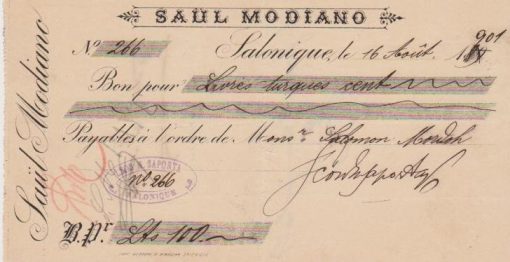 SAÜL MODIANO
Saül Modiano
Nº 266
Salonique, le 16 Août 1901
Bon pour Livres turques cent
Payables à l'ordre de Monsr. Salomon
SAPORTA
Nº 266
SALONIQUE
B.P.r Lts 100.